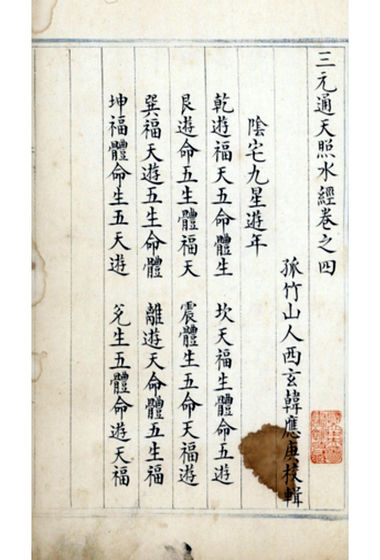 三元通天照水經卷之四
孤竹山人西玄韓應庚校輯
陰宅九星遊年
乾遊福天五命體生　坎天福生體命五遊
艮遊命五生體福天　震體生五命天福遊
巽福天遊五生命體　離遊天命體五生福
坤福體命生五天遊　兌生五體命遊天福